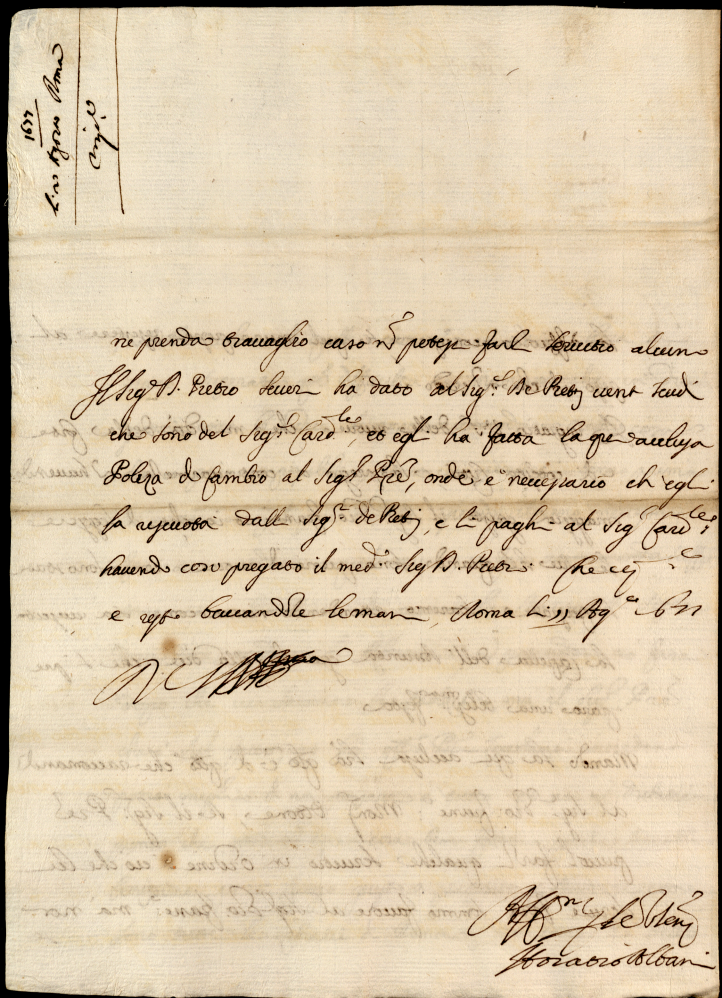 1677
Agosto Roma
ne prenda travaglio caso nõ potesse farli servitio alcuno
Il Sig.r D. Pietro Severi ha dato al Sig.r De Retij venti scudi
che sono del Sig.r Card.le et egli ha fatta la qui acclusa
Poliza di Cambio al Sig.r Pré, onde è necessario ch' egli
la riscuota dalli Sig.ri de Retij, e li paghi al Sig.r Card.le
havendo così pregato il med.o Sig.r D. Pietro. Che
e resto baciandole le mani, Roma li 11 Ag.o
D V S
Aff.mo
Horatio Albani